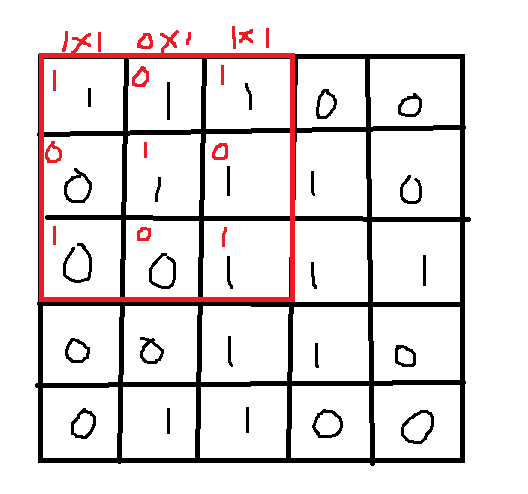 1x1 0x1 1x1
1 0 1
1 1 1 0 0
0 1 0
0 1 1 1 0
1 0 1
0 0 1 1 1
0 0 1 1 0
0 1 1 0 0